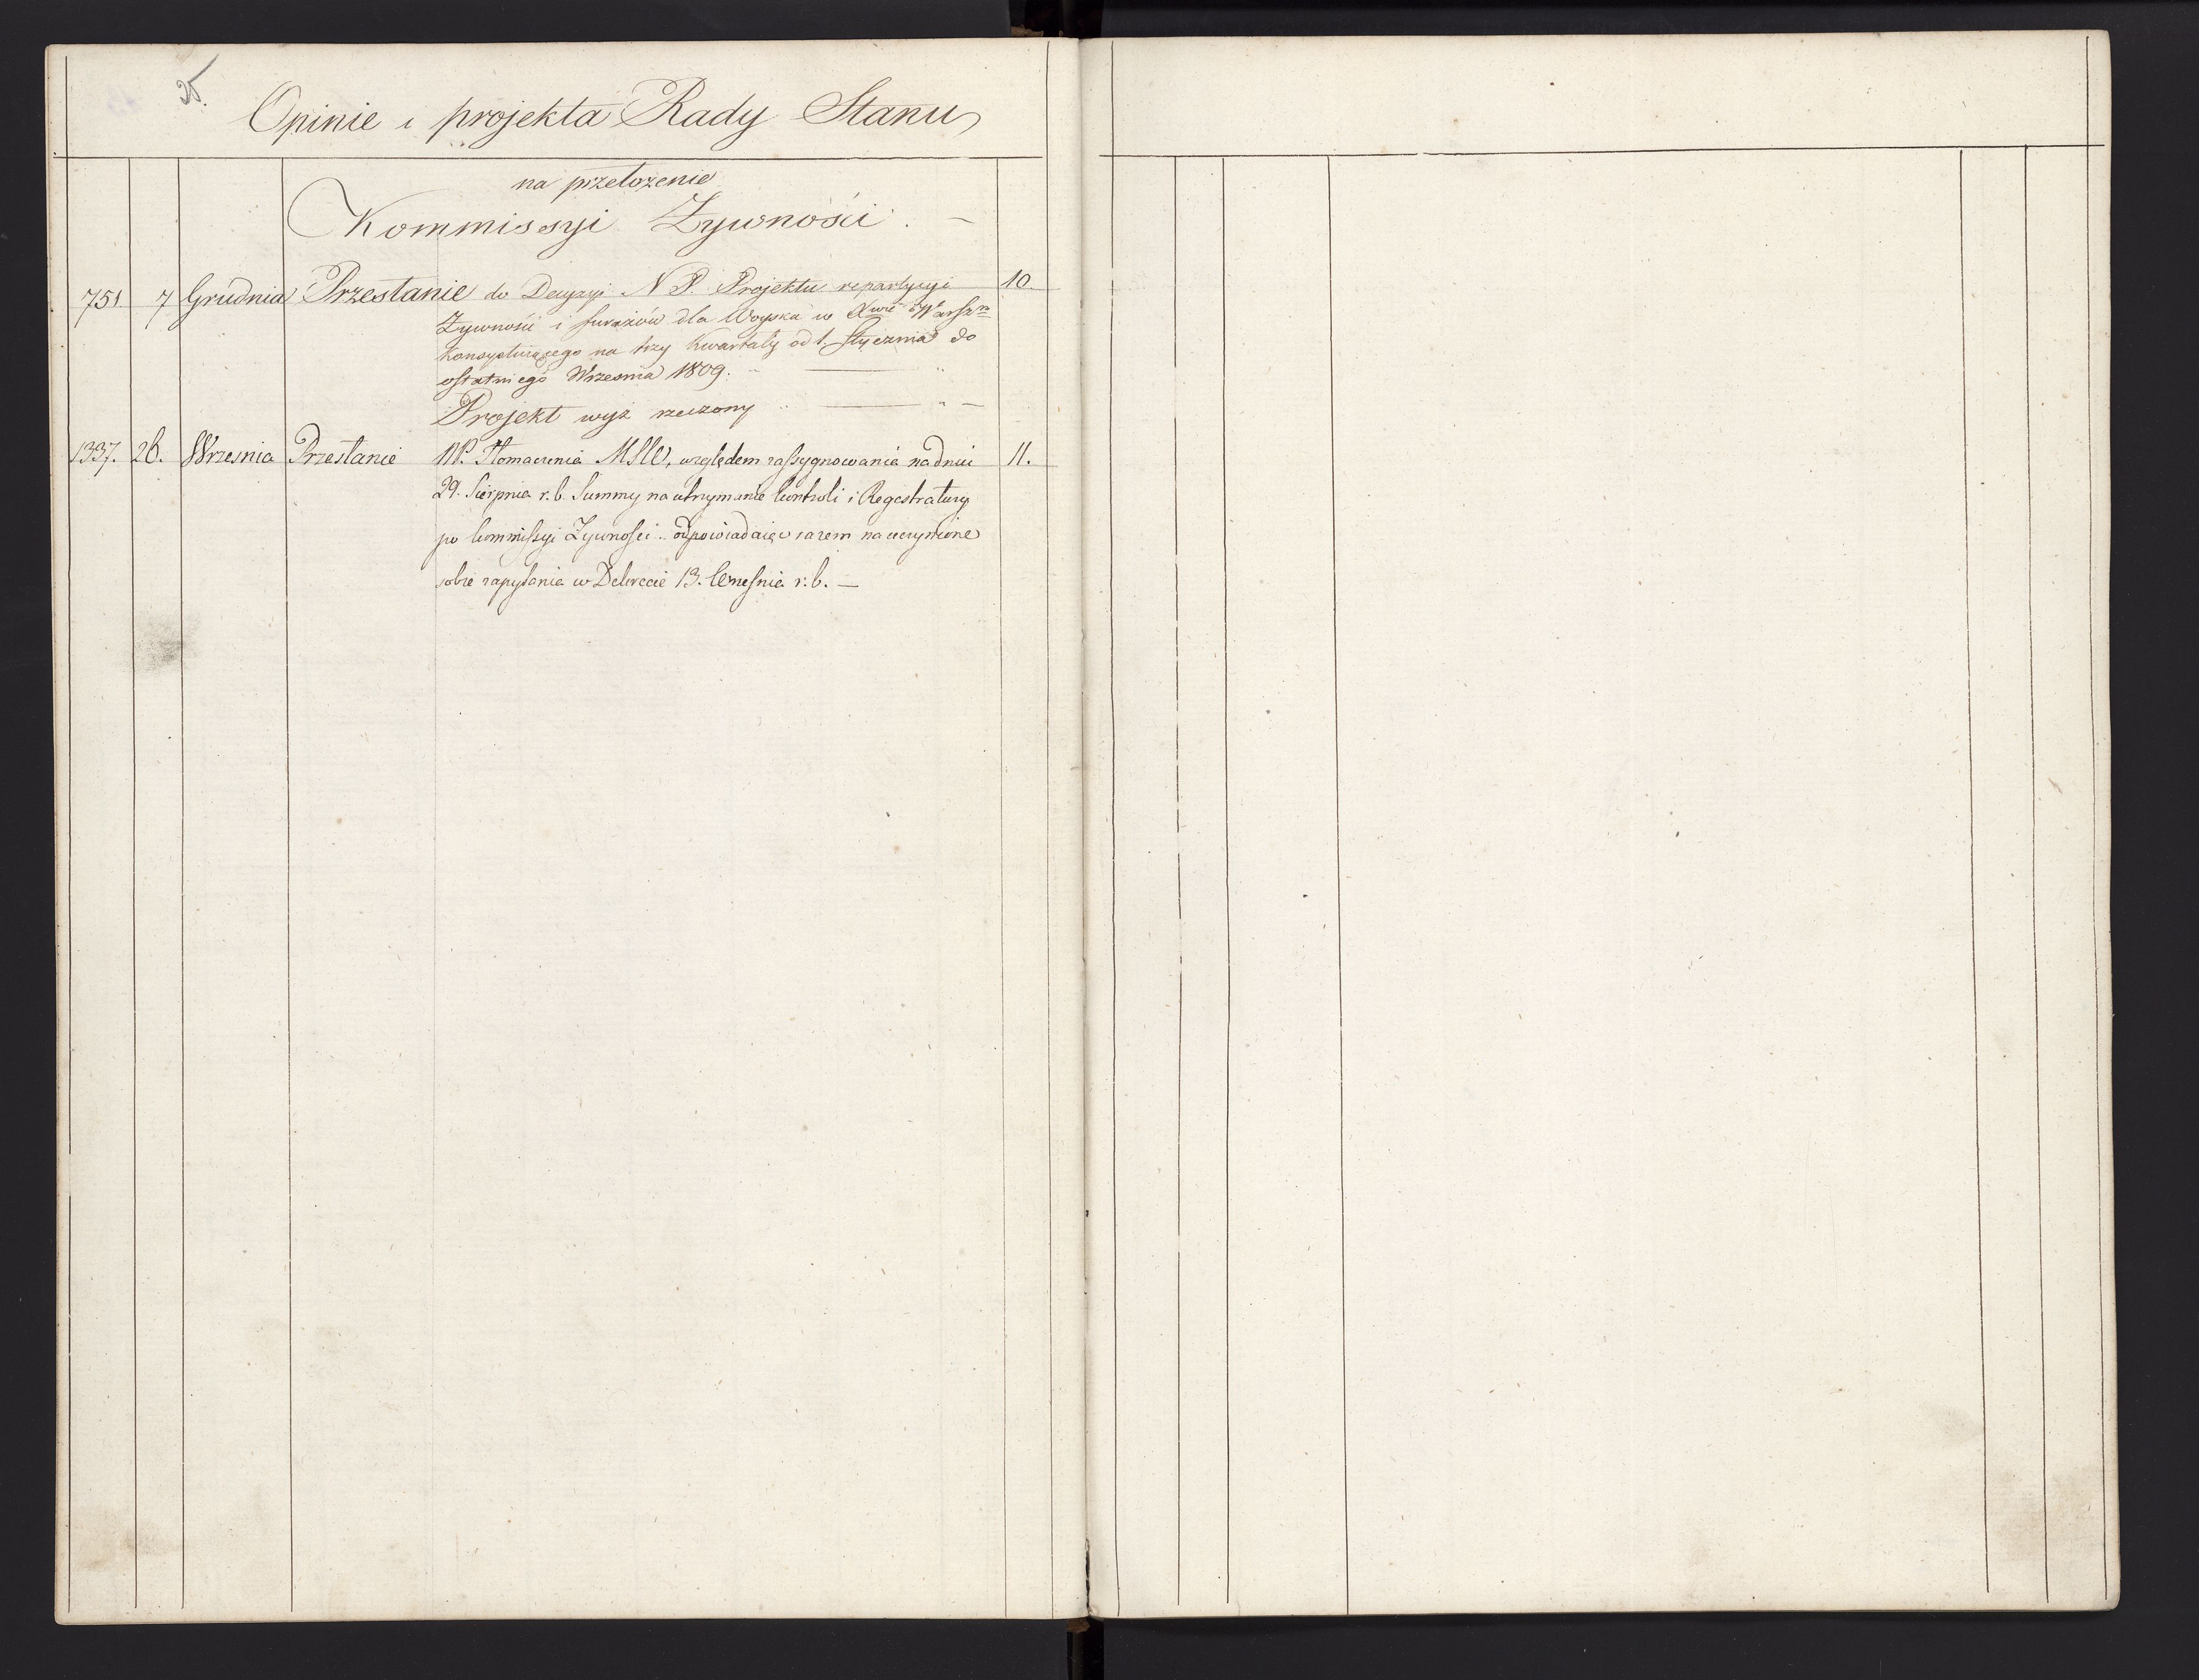 25.
Opinie i projekta Rady Stanu
na przełożenie
Kommissyi Żywności. —
751. 7 Grudnia Przesłanie do Decyzyi N P. Projektu repartycyi 10.
Żywności i furażów dla Woyska w Xwie Warszm
konsystuiącego na trzy kwartały od 1. Stycznia do
ostatniego Września 1809. — "
Projekt wyż rzeczony — " —
1337. 26. Wrzesnia Przesłanie NP. Tłomaczenia MSW, względem zassygnowania na dniu 11.
29. Sierpnia r. b. Summy na utrzymanie Kontroli i Regestratury
po Kommissyi Zywności odpowiadaiąc razem na uczynione
sobie zapytania w Dekrecie 13. Wrzesnia r. b. —